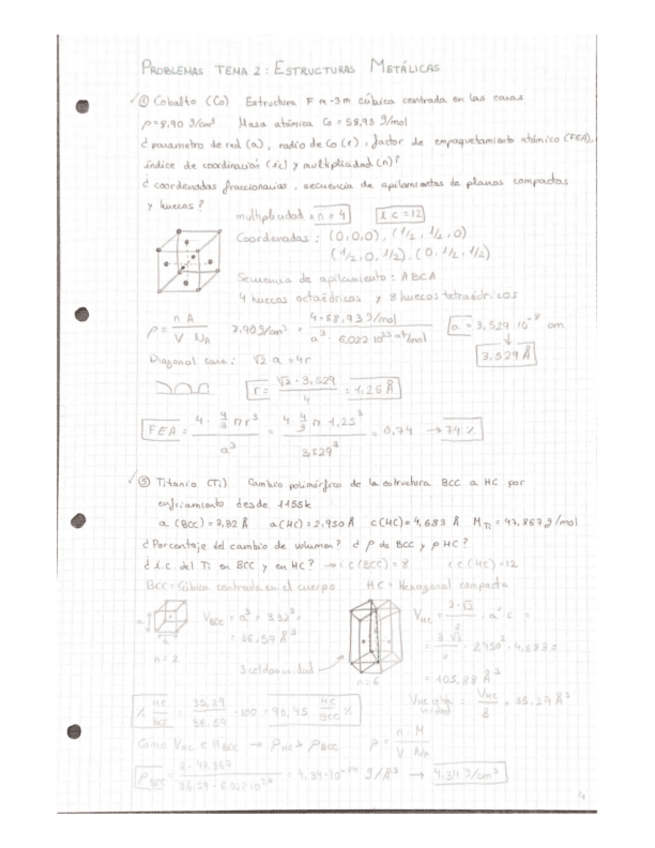 PROBLEMAS TEMA 2: ESTRUCTURAS METÁLICAS
Cobalto (Co) Estructura F m-3m cúbica centrada en las caras
ρ=8,90 g/cm³ Masa atómica Co = 58,93 g/mol
¿ parametro de red (a), radio de Co (r), factor de empaquetamiento atómico (FEA),
índice de coordinación (ic) y multiplicidad (n)?
¿ coordenadas fraccionarias, secuencia de apilamientos de planos compactos
y huecos?
multiplicidad = n = 4 i.c = 12
Coordenadas: (0,0,0), (1/2, 1/2, 0)
(1/2, 0, 1/2), (0, 1/2, 1/2)
Secuencia de apilamiento: ABCA
4 huecos octaédricos y 8 huecos tetraédricos
ρ = n A / V N_A 8,90 g/cm³ = 4·58,93 g/mol / a³ · 6,022·10²³ at/mol a = 3,529·10⁻⁸ cm
3,529 Å
Diagonal cara: √2 a = 4r
r = √2 · 3,529 / 4 = 1,25 Å
FEA = 4 · 4/3 π r³ / a³ = 4 · 4/3 π · 1,25³ / 3,529³ = 0,74 → 74 %
⑤ Titanio (Ti) Cambio polimórfico de la estructura BCC a HC por
enfriamiento desde 1155k
a (BCC) = 3,32 Å a (HC) = 2,950 Å c (HC) = 4,683 Å M_Ti = 47,867 g/mol
¿ Porcentaje del cambio de volumen? ¿ ρ de BCC y ρ HC?
¿ i.c. del Ti en BCC y en HC? → i.c (BCC) = 8 i.c (HC) = 12
BCC = Cúbica centrada en el cuerpo HC = Hexagonal compacta
V_BCC = a³ = 3,32³ =
= 36,59 Å³
n = 2
3 celdas unidad
n = 6
V_HC = 3·√3 / 2 · a² · c =
= 3 √3 / 2 · 2,950² · 4,683 =
= 105,88 Å³
V_HC celda unidad = V_HC / 3 = 35,29 Å³
% HC/BCC = 35,29 / 36,59 · 100 = 96,45 HC/BCC %
Como V_HC < V_BCC → ρ_HC > ρ_BCC ρ = n · M / V N_A
ρ_BCC = 2 · 47,867 / 36,59 · 6,022·10²³ = 4,34·10⁻²⁴ g/Å³ → 4,34 g/cm³